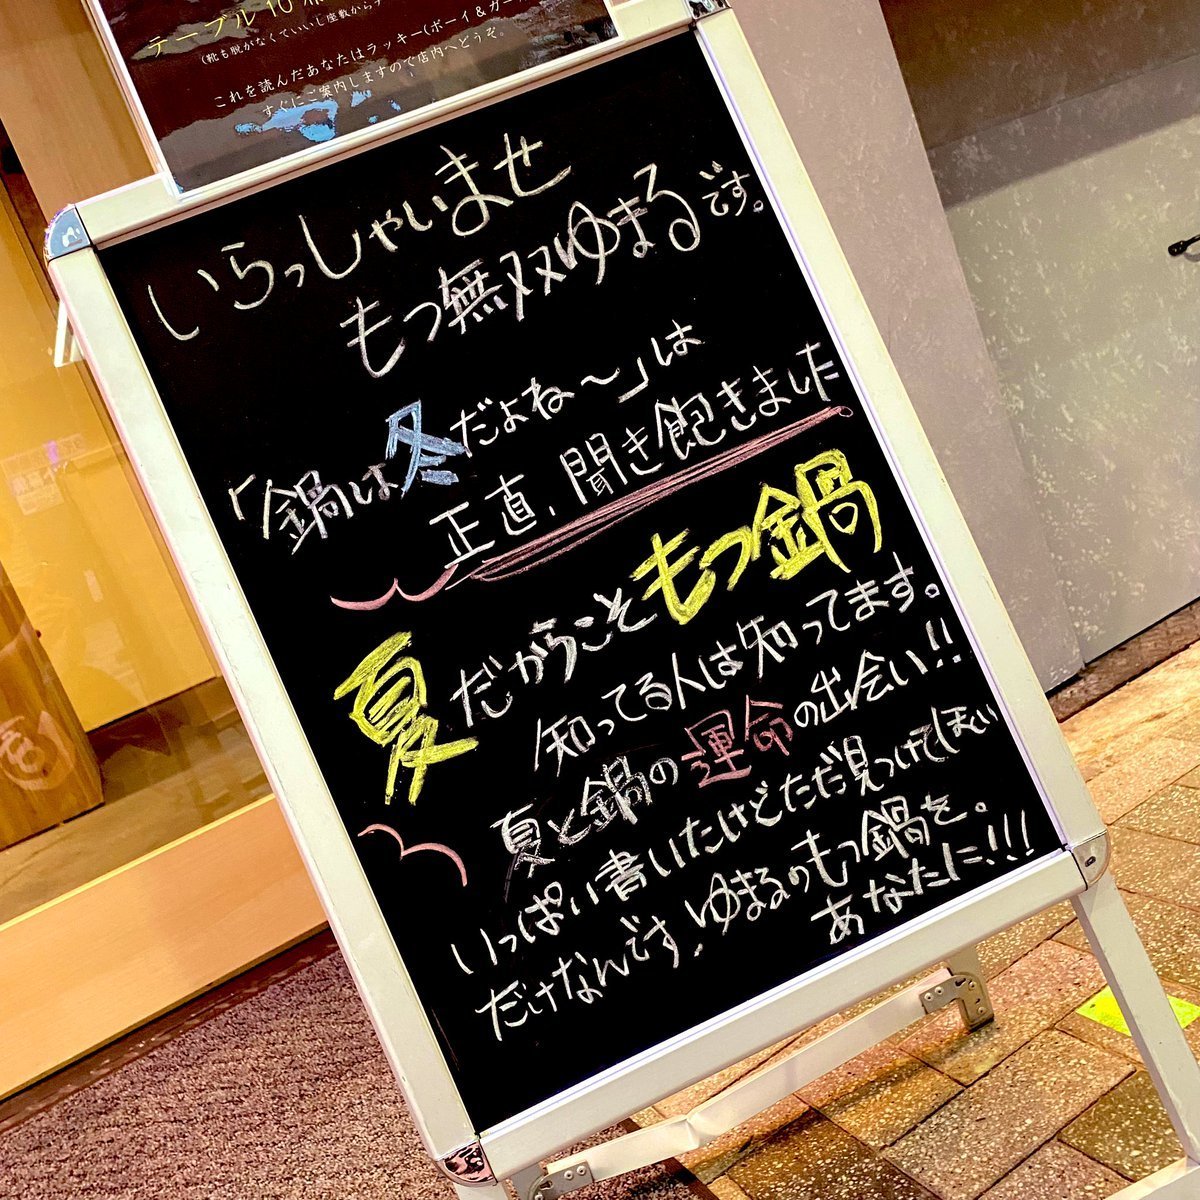 テーブル10
(靴も脱がなくていいし座敷から
これを読んだあなたはラッキー(ボーイ&ガール
すぐにご案内しますので店内へどうぞ。
いらっしゃいませ
もつ無双ゆまるです。
「鍋は冬だよね〜」は
正直、聞き飽きました
夏だからこそもつ鍋
知ってる人は知ってます。
夏と鍋の運命の出会い!!
いっぱい書いたけどただ見つけてほしい
だけなんです、ゆまるのもつ鍋を。
あなたに!!!